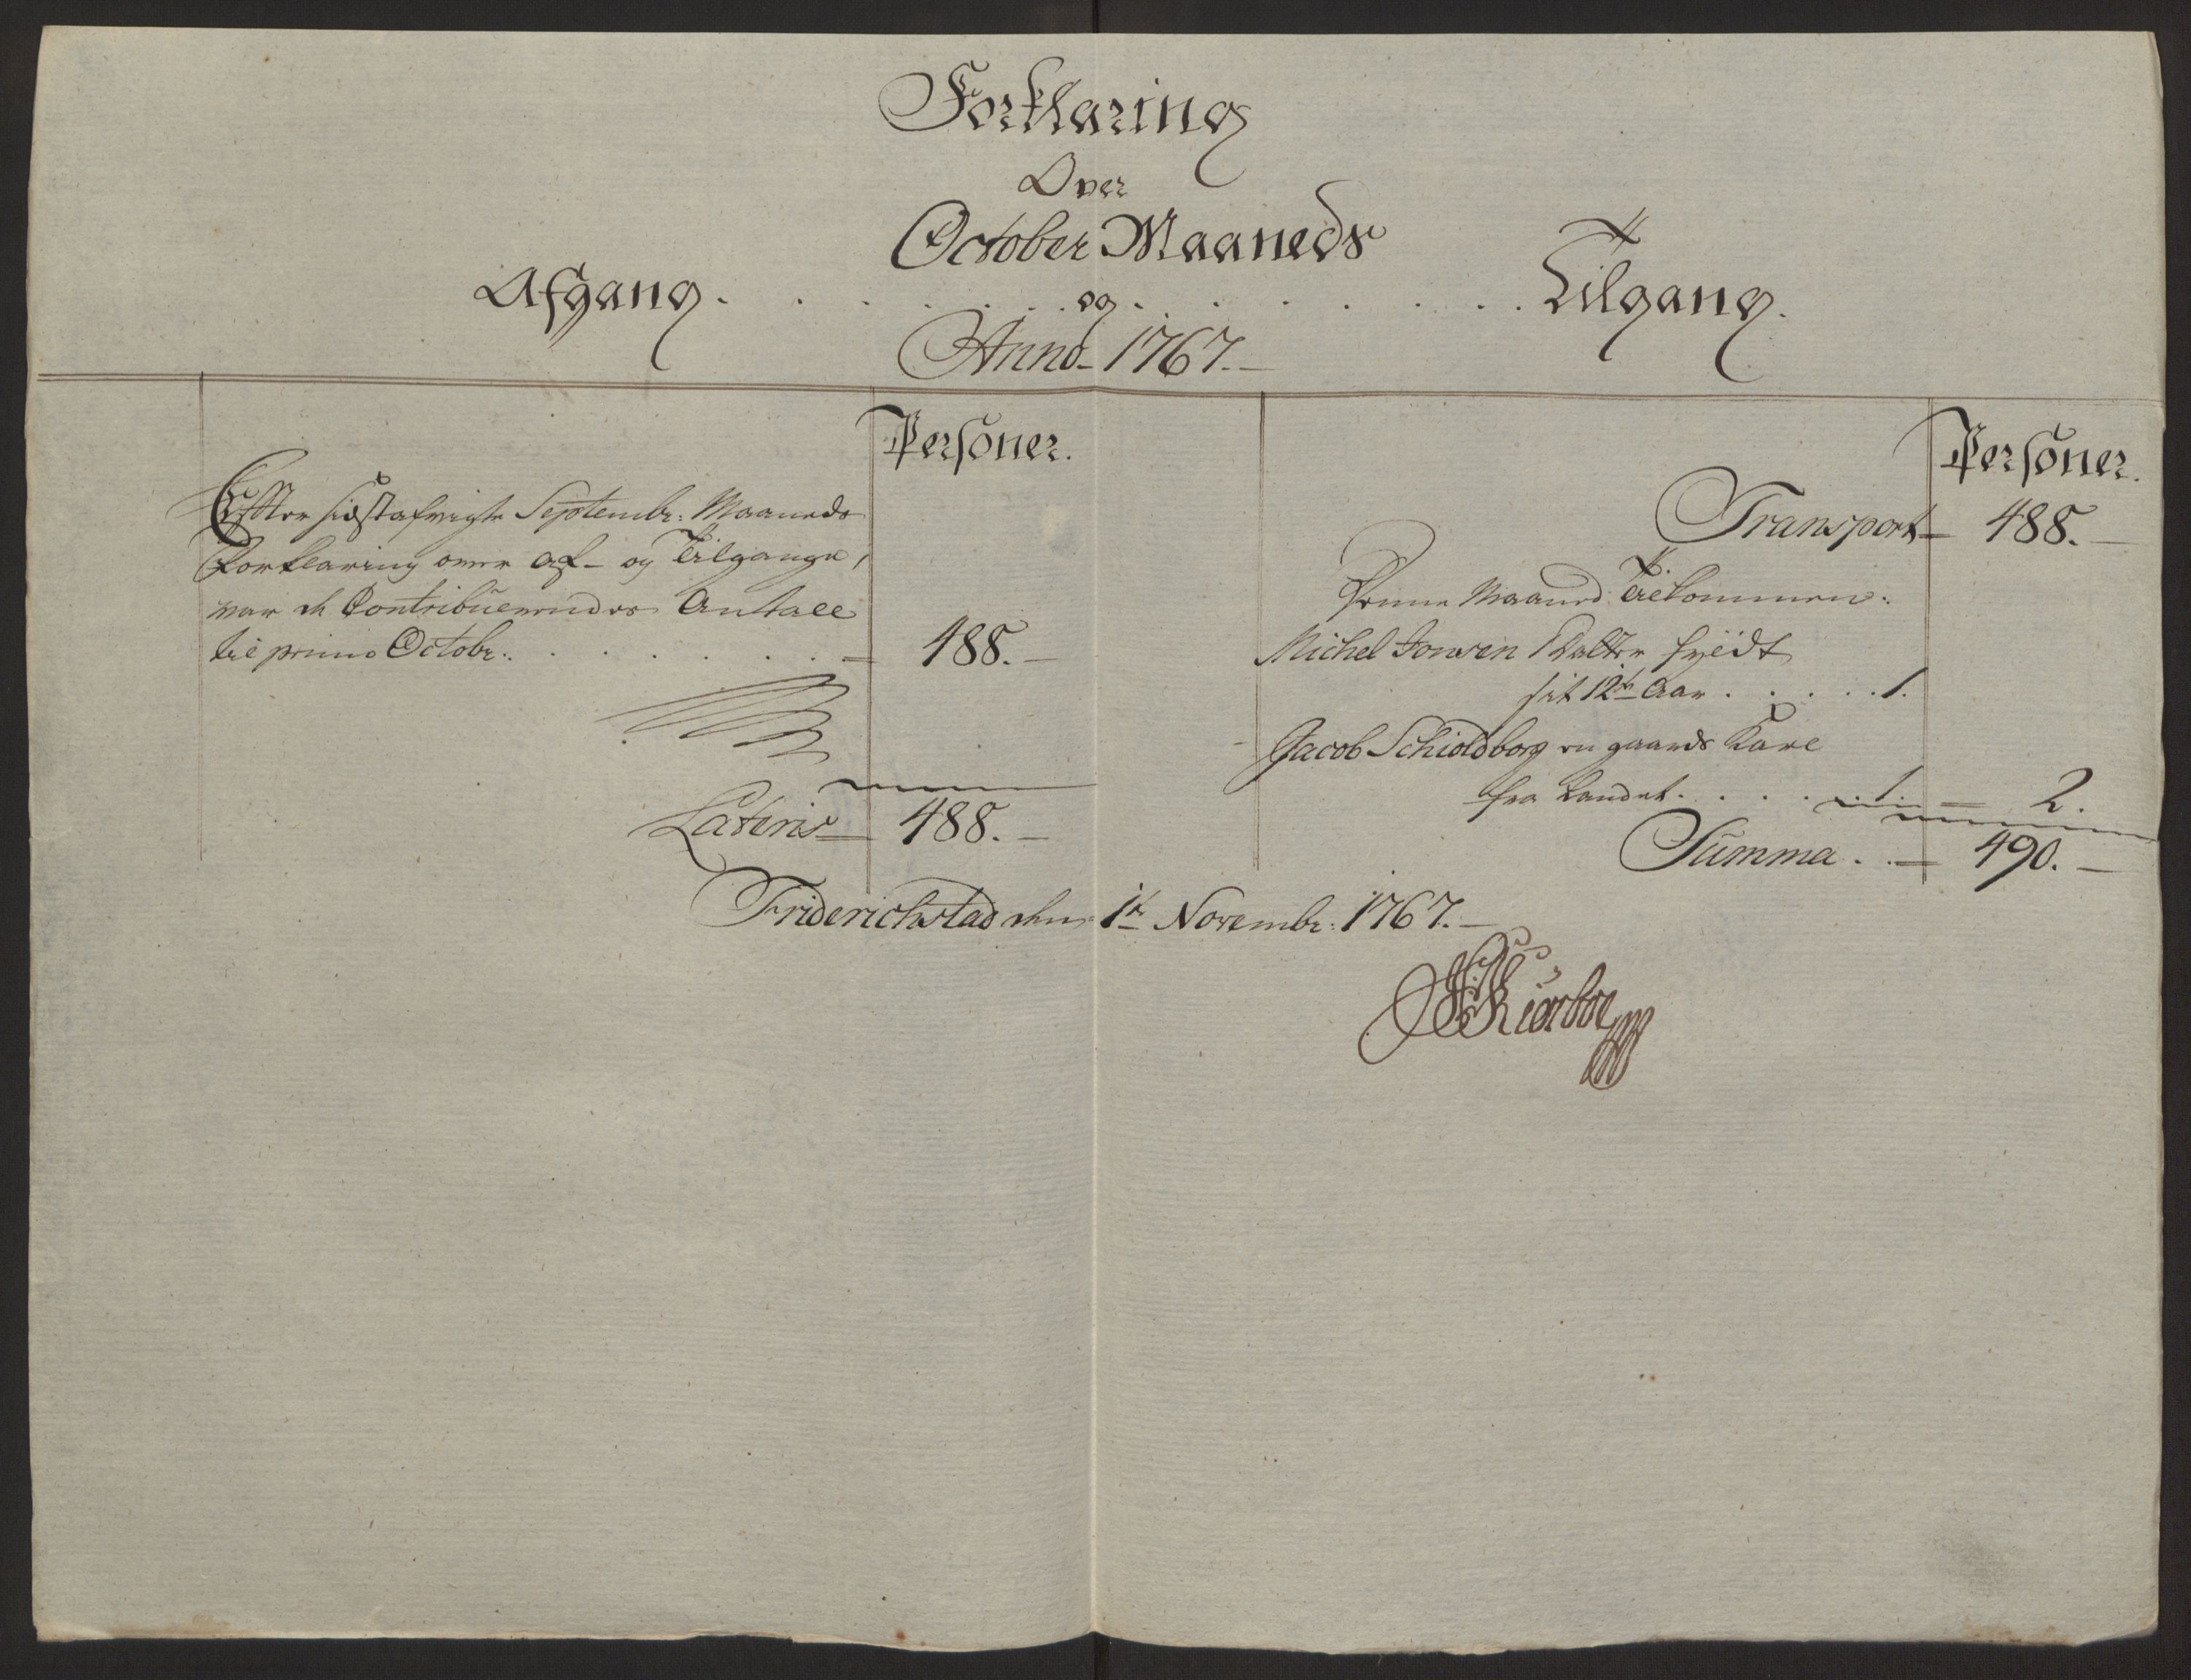 Forklaring
Over
October Maaneds
Afgang . . . . . . og . . . . . . Tilgang.
Anno 1767.
Personer.
Effter sidstafvigte Septembr: Maaneds
Forklaring over af- og Tilgange,
var de Contribuerendes Antall
til primo Octobr: . . . . . . . 488.
Lateris 488.
Personer.
Transport 488.
Denne Maaned Tilkommen:
Michel Jonsen datter fyldt
sit 12te Aar . . . . . 1.
Jacob Schioldborg en gaards Karl
fra Landet . . . . . 1. 2.
Summa . . 490.
Friderichstad den 1te Novembr: 1767.
Kiørboe